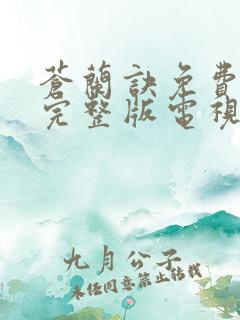 蒼蘭訣免費
完整版電視
九月公子
未經同意禁止轉載